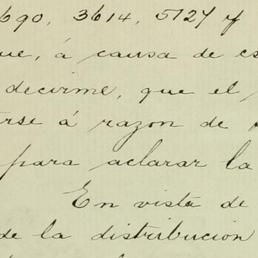 690, 3614, 5127 y
que, á causa de es
decirme, que el
rse á razon de
para aclarar la
En vista de
de la distribucion